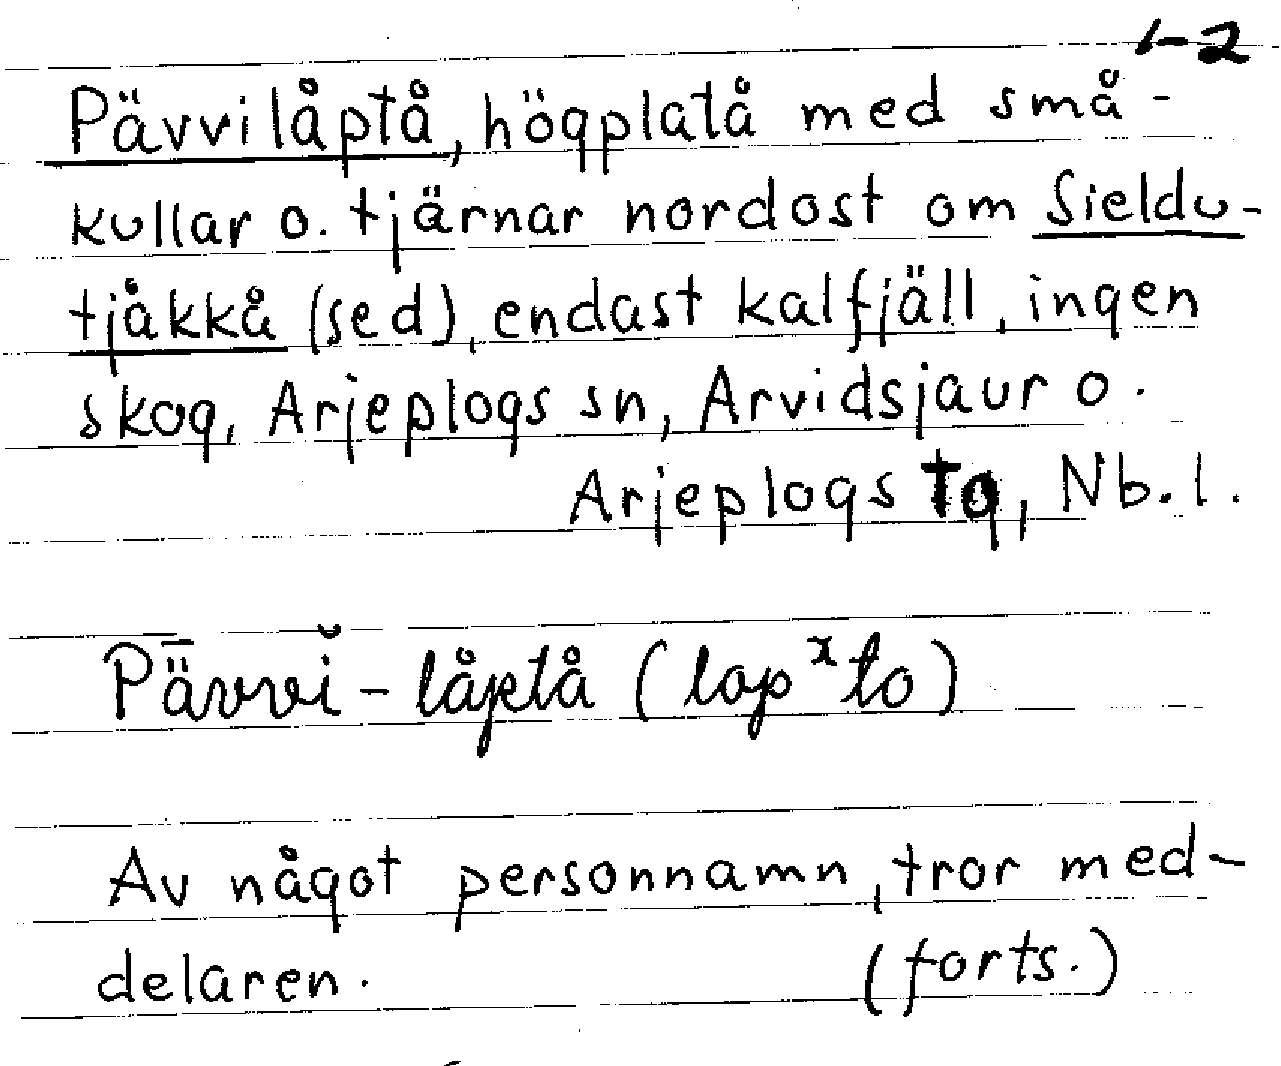 1-2
Pävvilåptå, högplatå med små-
kullar o. tjärnar nordost om Sieldu-
tjåkkå (sed), endast kalfjäll, ingen
skog, Arjeplogs sn, Arvidsjaur o.
Arjeplogs tg, Nb. l.
Pǟvvĭ-låptå (lapˣto)
Av något personnamn, tror med-
delaren. (forts.)